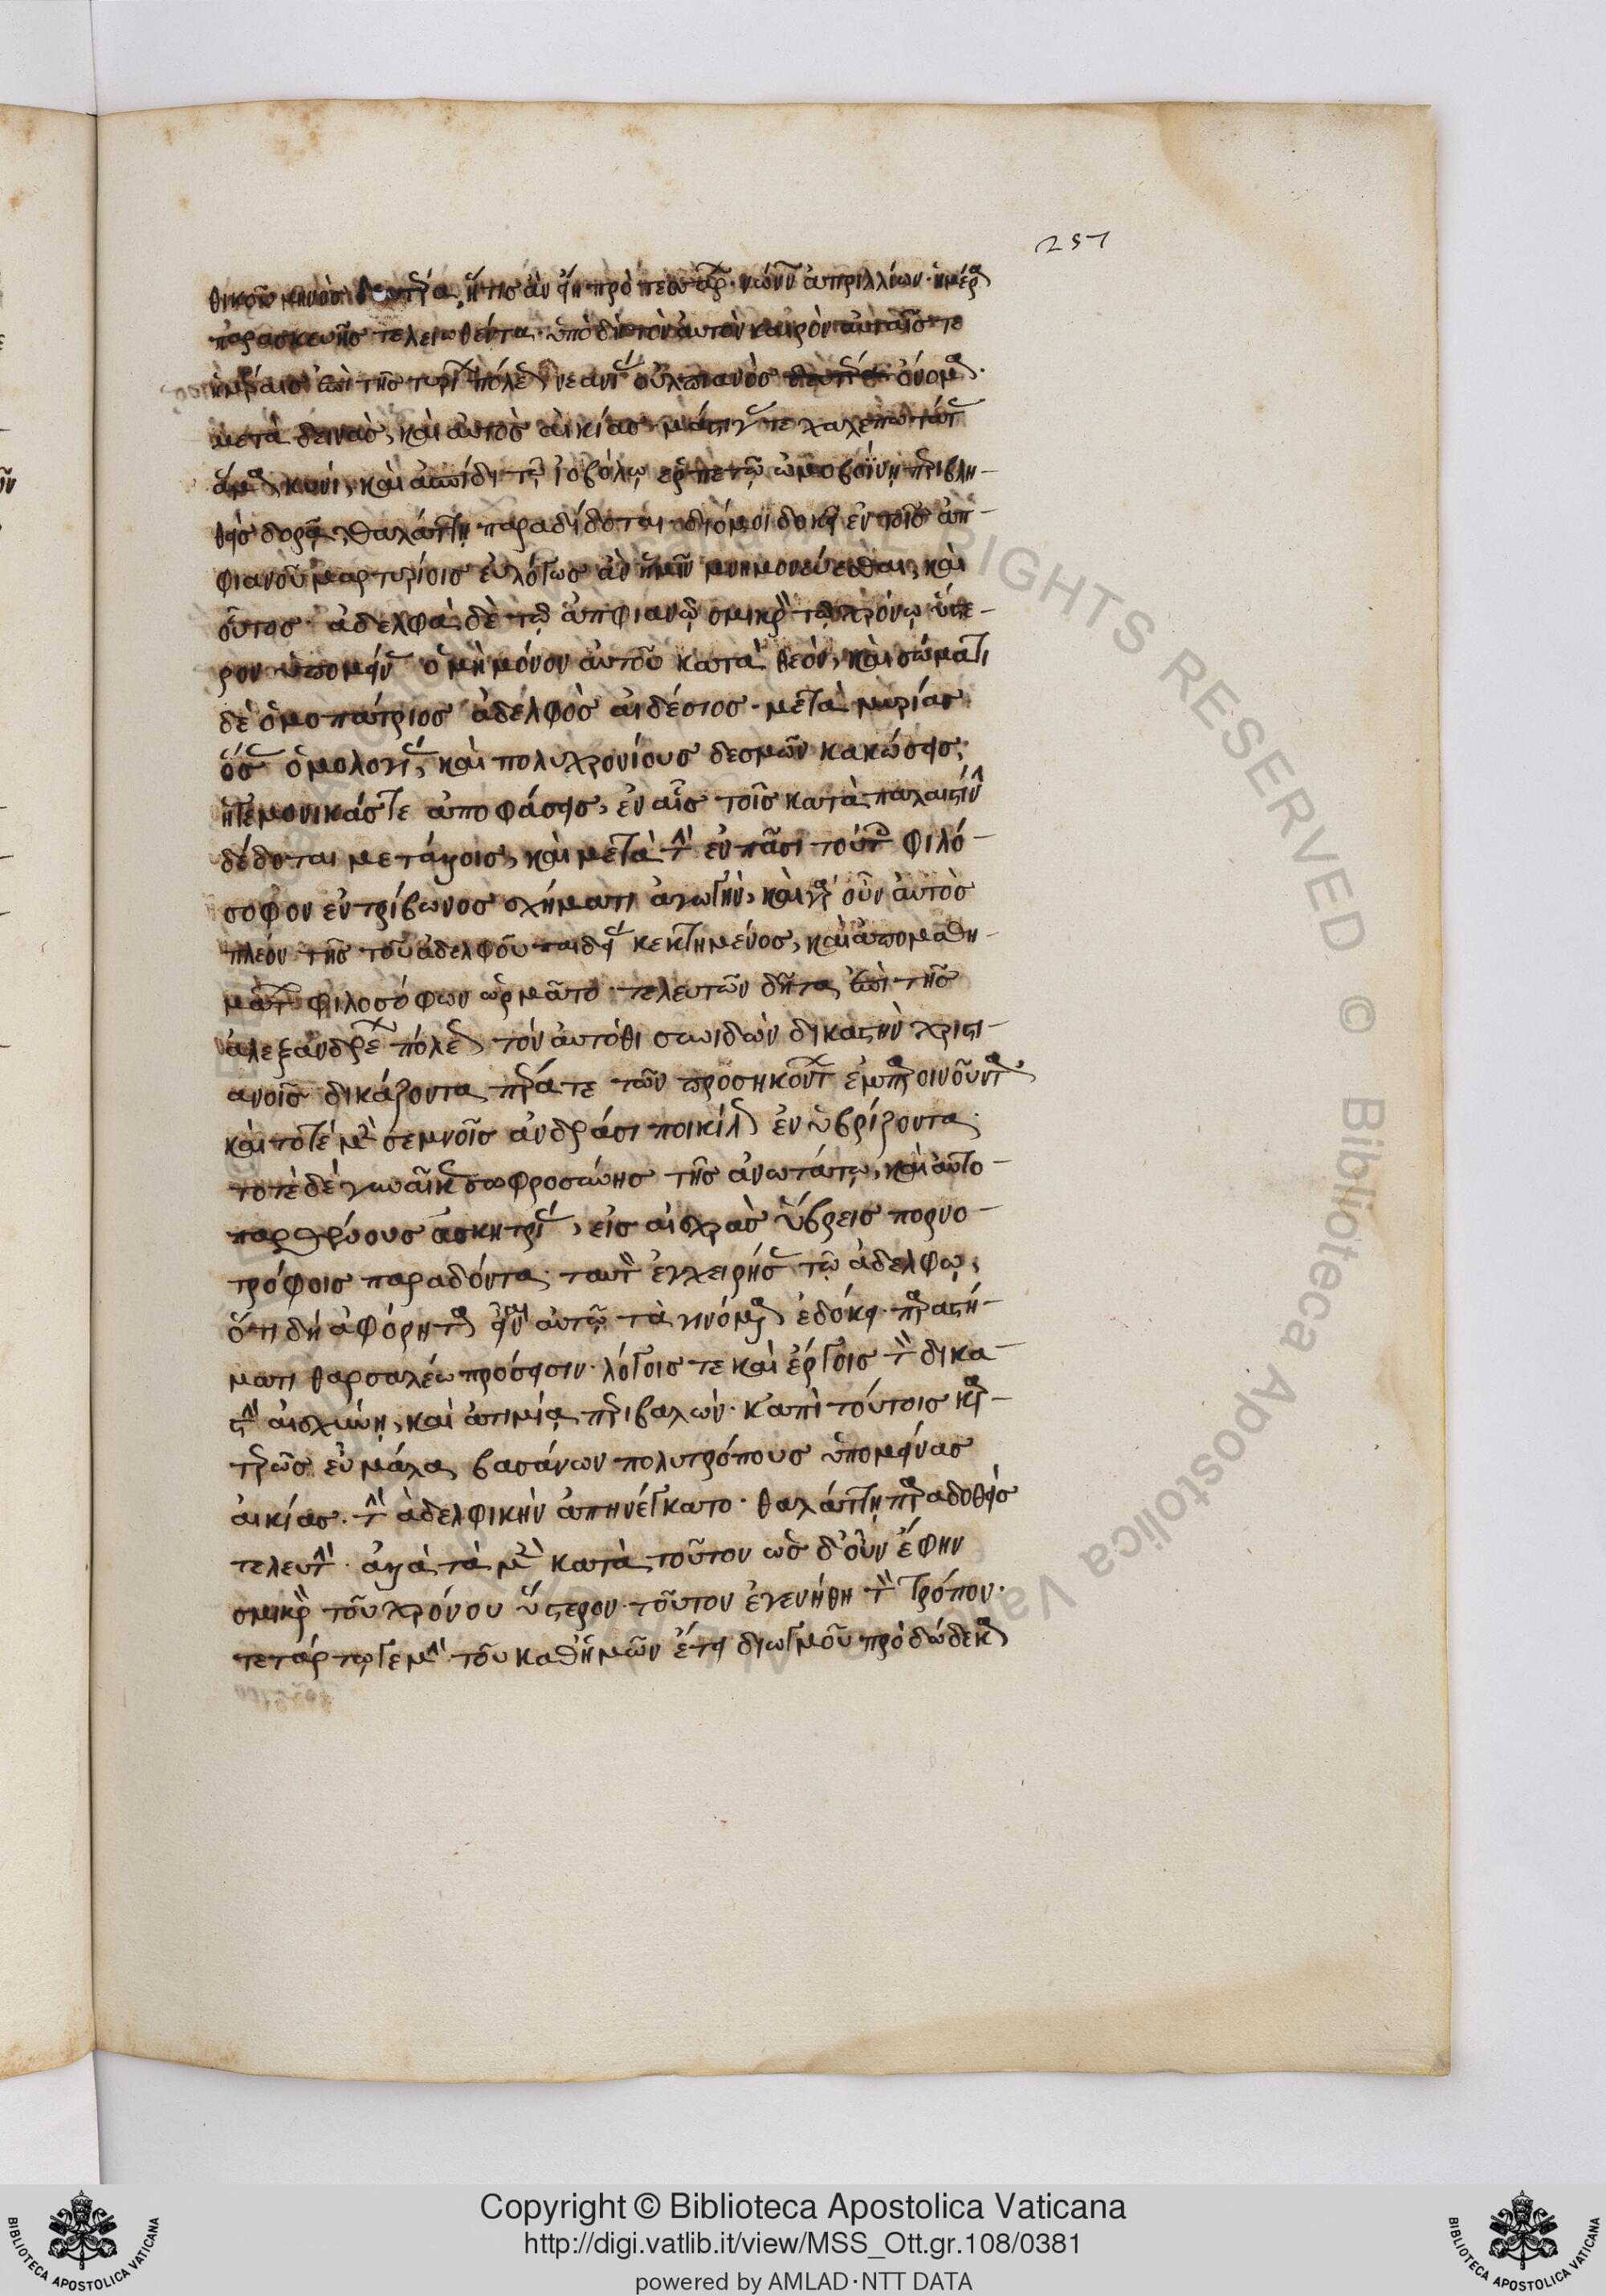 257
θικοῦ μηνὸς δευτέρα, ἥτις ἂν εἴη πρὸ τεσσάρων νωνῶν ἀπριλλίων· ἡμέρα
παρασκευῆς τελειωθέντα· ὑπὸ δὲ τὸν αὐτὸν καιρὸν αὐταῖς τε
ἡμέραις ἐπὶ τῆς τυρίων πόλεως νεανίας οὐλπιανὸς ὄνομα·
μετὰ δεινὰς, καὶ αὐτὸς αἰκίας μάστιγάς τε χαλεπωτάτας
ἅμα κυνὶ, καὶ ἀσπίδι τῷ ἰοβόλῳ ἑρπετῷ ὠμοβοΐνῃ περιβλη-
θεὶς δορᾷ, θαλάττῃ παραδίδοται· διό μοι δοκεῖ ἐν τοῖς ἀπ-
φιανοῦ μαρτυρίοις εὐλόγως ἂν ἡμῖν μνημονεύεσθαι, καὶ
οὗτος· ἀδελφὰ δὲ τῷ ἀπφιανῷ σμικρὸν τῷ χρόνῳ ὕστε-
ρον ὑπομένει ὁ μὴ μόνον αὐτοῦ κατὰ θεὸν, καὶ σώματι
δὲ ὁμοπάτριος ἀδελφὸς αἰδέσιος· μετὰ μυρίας
ὅσας ὁμολογίας, καὶ πολυχρονίους δεσμῶν κακώσεις,
ἡγεμονικάς τε ἀποφάσεις, ἐν αἷς τοῖς κατὰ παλαιστίνην
δέδοται μετάλλοις, καὶ μετὰ τὴν ἐν πᾶσι τούτοις φιλό-
σοφον ἐν τρίβωνος σχήματι ἀγωγὴν, καὶ γὰρ οὖν αὐτὸς
πλέον τῆς τοῦ ἀδελφοῦ παιδείας κεκτημένος, καὶ ἀπὸ μαθη-
μάτων φιλοσόφων ὡρμᾶτο· τελευτῶν δῆτα ἐπὶ τῆς
ἀλεξανδρέων πόλεως τὸν αὐτόθι συνιδὼν δικαστὴν χριστι-
ανοῖς δικάζοντα πέρα τε τῶν προσηκόντων ἐμπαροινοῦντα·
καὶ τοτὲ μὲν σεμνοῖς ἀνδράσι ποικίλως ἐνυβρίζοντα·
τοτὲ δὲ γυναῖκας σωφροσύνης τῆς ἀνωτάτω, καὶ αὐτο-
παρθένους ἀσκητρίας, εἰς αἰσχρὰς ὕβρεις πορνο-
τρόφοις παραδόντα· ταυτὸν ἐγχειρήσας τῷ ἀδελφῷ,
ὅτι δὴ ἀφόρητα εἶναι αὐτῷ τὰ γινόμενα ἐδόκει παραστή-
ματι θαρσαλέω πρόσεισιν· λόγοις τε καὶ ἔργοις τὸν δικα-
στὴν αἰσχύνῃ, καὶ ἀτιμίᾳ περιβαλὼν· κἀπὶ τούτοις καρ-
τερῶς εὖ μάλα βασάνων πολυτρόπους ὑπομείνας
αἰκίας· τὴν ἀδελφικὴν ἀπηνέγκατο· θαλάττῃ παραδοθεὶς
τελευτὴν· ἀλλὰ τὰ μὲν κατὰ τοῦτον ὡς δ' οὖν ἔφην
σμικρὸν τοῦ χρόνου ὕστερον· τοῦτον ἐγενήθη τὸν τρόπον·
τετάρτῳ γε μὴν τοῦ καθ' ἡμῶν ἔτει διωγμοῦ πρὸ δώδεκα
Copyright © Biblioteca Apostolica Vaticana
http://digi.vatlib.it/view/MSS_Ott.gr.108/0381
powered by AMLAD·NTT DATA